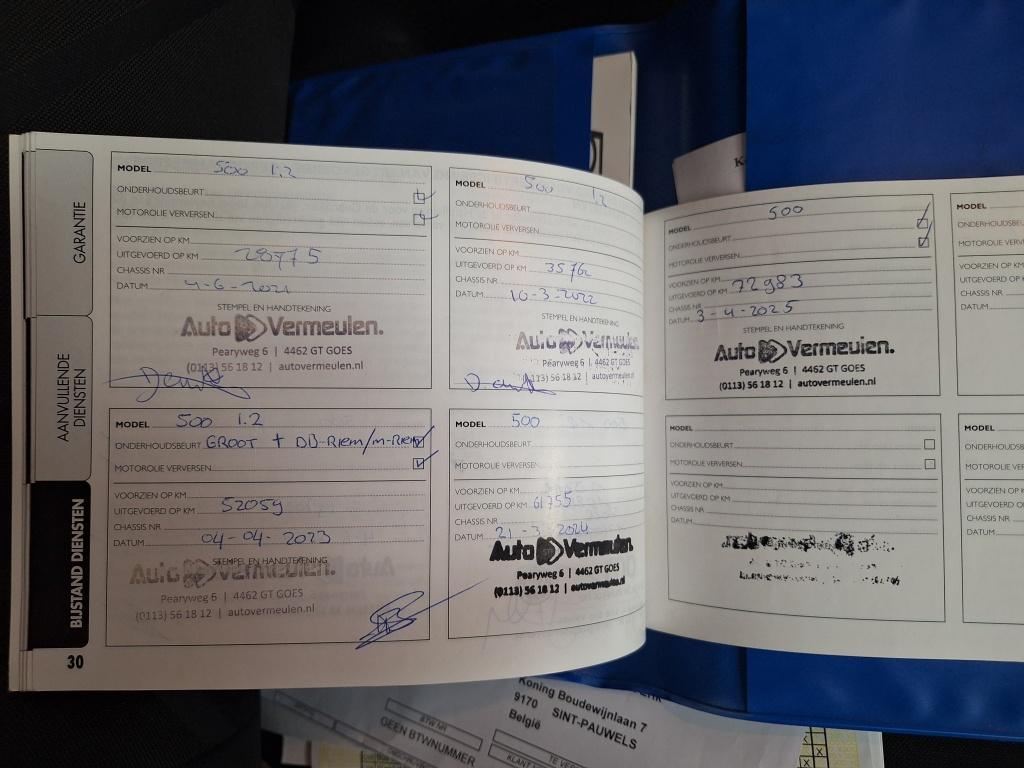 GARANTIE
AANVULLENDE
DIENSTEN
BIJSTAND DIENSTEN
30
MODEL 500 1.2
ONDERHOUDSBEURT
MOTOROLIE VERVERSEN
VOORZIEN OP KM
UITGEVOERD OP KM 28775
CHASSIS NR
DATUM 4-6-2021
STEMPEL EN HANDTEKENING
Auto Vermeulen.
Pearyweg 6 | 4462 GT GOES
(0113) 56 18 12 | autovermeulen.nl
MODEL 500 1.2
ONDERHOUDSBEURT
MOTOROLIE VERVERSEN
VOORZIEN OP KM
UITGEVOERD OP KM 35762
CHASSIS NR
DATUM 10-3-2022
STEMPEL EN HANDTEKENING
Auto Vermeulen.
Pearyweg 6 | 4462 GT GOES
(0113) 56 18 12 | autovermeulen.nl
MODEL 500 1.2
ONDERHOUDSBEURT GROOT + DIS-RIEM/M-RIEM
MOTOROLIE VERVERSEN
VOORZIEN OP KM
UITGEVOERD OP KM 52059
CHASSIS NR
DATUM 04-04-2023
STEMPEL EN HANDTEKENING
Auto Vermeulen.
Pearyweg 6 | 4462 GT GOES
(0113) 56 18 12 | autovermeulen.nl
MODEL 500
ONDERHOUDSBEURT
MOTOROLIE VERVERSEN
VOORZIEN OP KM
UITGEVOERD OP KM 61755
CHASSIS NR
DATUM 21-3-2024
Auto Vermeulen.
Pearyweg 6 | 4462 GT GOES
(0113) 56 18 12 | autovermeulen.nl
MODEL 500
ONDERHOUDSBEURT
MOTOROLIE VERVERSEN
VOORZIEN OP KM
UITGEVOERD OP KM 72983
CHASSIS NR
DATUM 3-4-2025
STEMPEL EN HANDTEKENING
Auto Vermeulen.
Pearyweg 6 | 4462 GT GOES
(0113) 56 18 12 | autovermeulen.nl
MODEL
ONDERHOUDSBEURT
MOTOROLIE VERVERSEN
VOORZIEN OP KM
UITGEVOERD OP KM
CHASSIS NR
DATUM
MODEL
MOTOROLIE
VOORZIEN OP
UITGEVOERD
CHASSIS
DATUM
MODEL
ONDERHOUDSBE
MOTOROLIE VE
VOORZIEN OP KM
UITGEVOERD OP
CHASSIS NR
DATUM
Koning Boudewijnlaan 7
9170 SINT-PAUWELS
België
BTW NR
GEEN BTWNUMMER
KLANT
TE VE